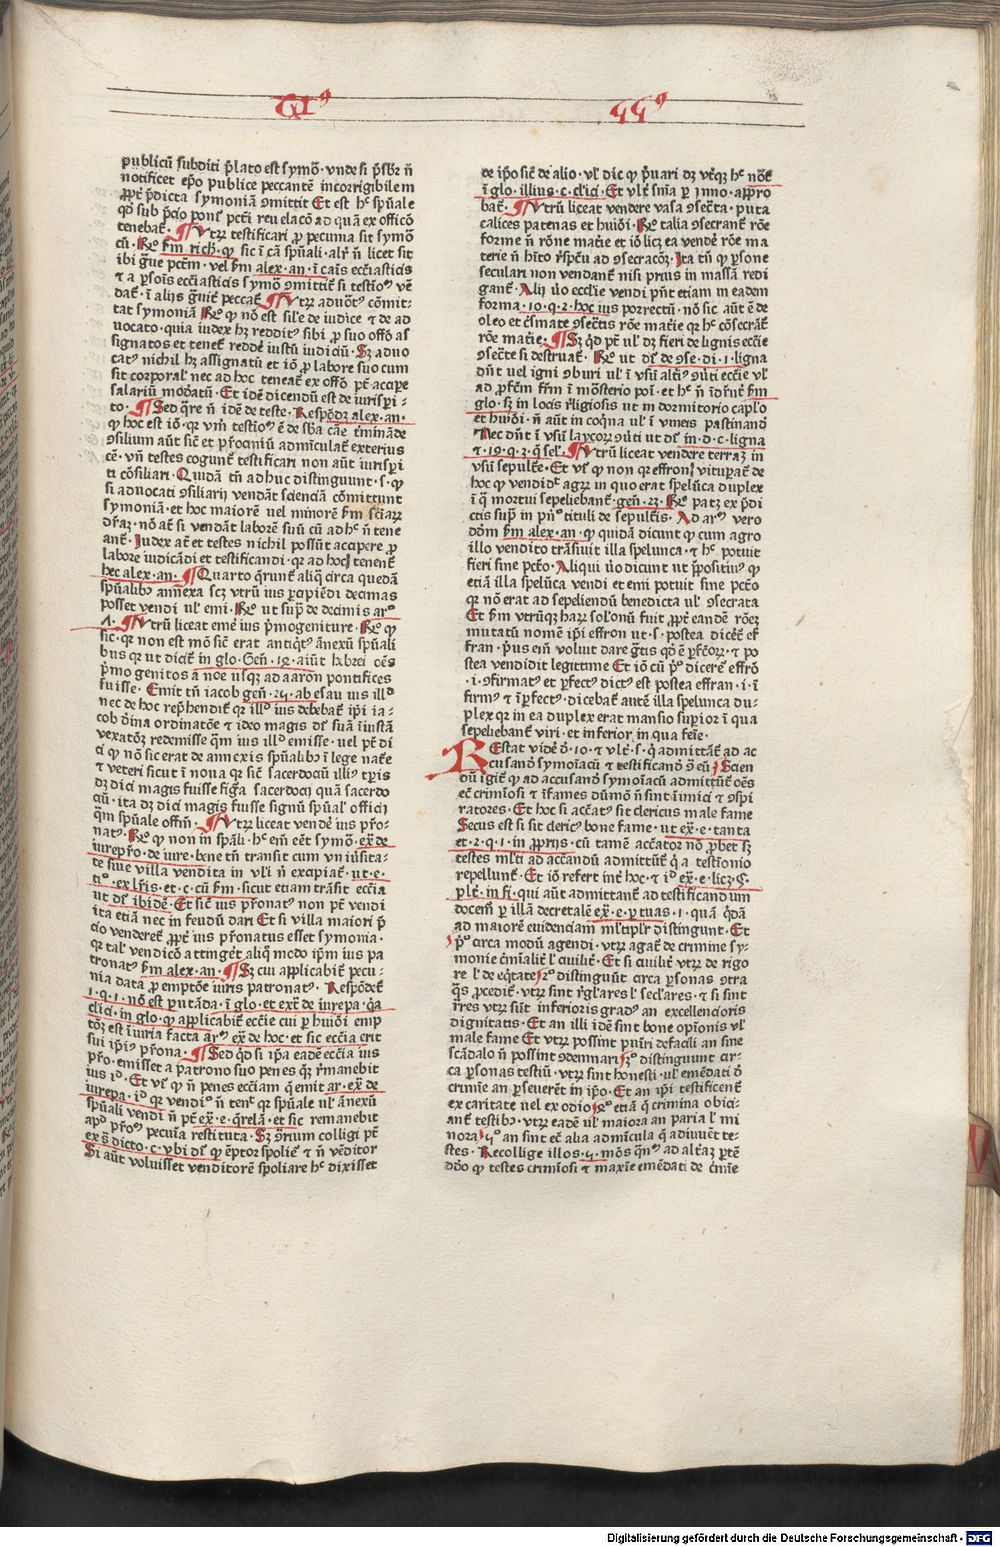 publicū subditi p̄lato est symō· vnde si p̄sbr̄ n̄
notificet ep̄o publice peccantē incorrigibilem
ꝓpt̄ p̄dicta symoniā ꝯmittit Et est hͨ spūale
qd̓ sub p̄cio ponit̄ pctī reuelacō ad quā ex officō
tenebat̄· ¶ Vtrꝝ testificari ꝓ pecunia sit symō
cū· Rͦ ẜm rich· ꝙ sic ī cā spūali· alr̄ n̄ licet sit
ibi ḡue pctm̄· vel ẜm alex· an· ī caīs ecciasticis
⁊ a ꝑsoīs ecciasticis symō ꝯmittit̄ si testioꝰ vē
dat̄· ī alijs ḡuit̄ peccat̄ ¶ Vtrꝝ aduotꝰ cōmit-
tat symoniā Rͦ ꝙ nō est sile de iudice ⁊ de ad
uocato· quia iudex hꝫ redditꝰ sibi ꝓ suo offō as
signatos et tenet̄ reddē iustū iudiciū· Sꝫ aduo
catꝰ nichil hꝫ assignatū et iō ꝓ labore suo cum
sit corporal᷒ nec ad hoc teneat̄ ex offō pt̄ accipe
salariū modatū· Et idē dicendū est de iurisperi-
to· ¶ Sed q̄re n̄ idē de teste· Respōdꝫ alex· an·
ꝙ hoc est iō· qꝛ vm̄ testioꝰ ē de sb̄a cāe t̄mināde
ꝯsilium aūt sic̄ et pr̄ociniū admīculat̄ exterius
cē· vn̄ testes cogunt̄ testificari non aūt iurisperi
ti cōsiliari· Quidā tn̄ adhuc distinguunt· s· ꝙ
si aduocati ꝯsiliarij vendāt scienciā cōmittunt
symoniā· et hoc maiorē uel minorē ẜm sciaꝝ
dr̄aꝫ· nō at̄ si vendāt laborē suū cū ad hͨ n̄ tene
ant̄· Iudex at̄ et testes nichil possūt accipere ꝓ
labore iudicādi et testificandi· qꝛ ad hoc tenent̄
hec alex· an· ¶ Quarto q̄runt̄ aliq̄ circa quedā
spūalibꝰ annexa scꝫ vtrū ius ꝑcipiēdi decimas
posset vendi ul̓ emi· Rͦ ut supͣ de decimis arͦ
Λ· ¶ Vtrū liceat emē ius p̄mogeniture· Rͦ ꝙ
sic· qꝛ non est mō sic̄ erat antiqtꝰ ānexū spūali
bus qꝛ ut dicit̄ in glo· Gen̄· 12· aiūt hebrei oēs
p̄mogenitos a noe usqꝫ ad aaron pontifices
fuisse· Emit tn̄ iacob gen̄· 25· ab esau ius illd̓
nec de hoc rep̄hendit̄ qꝛ illd̓ ius debebat̄ ip̄i ia-
cob diuina ordinatōe ⁊ ideo magis dr̄ suā iniustā
vexatōꝫ redemisse qm̄ ius illd̓ emisse· uel pt̄ di
ci ꝙ nō sic erat de annexis spūalibꝰ ī lege nat̄e
⁊ veteri sicut ī noua qꝛ sic̄ sacerdociū illiꝰ tp̄ris
dꝫ dici magis fuisse figͣa sacerdocij quā sacerdo
ciū· ita dꝫ dici magis fuisse signū spūal᷒ officij
qm̄ spūale offm̄· ¶ Vtrꝝ liceat vendē ius pr̄o-
natꝰ· Rͦ ꝙ non in spāli· hͨ em̄ eēt symō· ex̄ de
iurepr̄o· de iure· bene tn̄ transit cum vniūsita-
te siue villa vendita in vl̓i n̄ exapiat̄· ut· e·
tiͦ· ex lr̄is· et· c· cū ẜm· sicut etiam trāsit eccīa
ut dr̄ ibidē· Et sic̄ ius pr̄onatꝰ non pt̄ vendi
ita etiā nec in feudū dari Et si villa maiori p̄
cio venderet̄ ꝓpt̄ ius pr̄onatus esset symonia·
qꝛ tal᷒ vendicō attinget̄ aliq̄ mōdo ip̄m ius pa
tronatꝰ ẜm alex· an· ¶ Sꝫ cui applicabit̄ pecu-
nia data ꝓ emptōe iuris patronatꝰ· Respōdet̄
1· q· 1· nō est putāda· ī glo· et ex̄· de iurepa· q̄a
clici· in glo· ꝙ applicabit̄ ecc̄ie cui ꝑ huiōi emp
tōꝫ est īiuria facta arꝰ ex̄ de hoc· et sic eccīa erit
sui ip̄iꝰ pr̄ona· ¶ Sed qd̓ si ip̄a eadē eccīa ius
pr̄o· emisset a patrono suo penes qꝫ r̄manebit
ius id̓· Et vr̄ ꝙ n̄ penes ecciam q̄ emit ar· ex̄ de
iurepa· id̓ qꝛ vendioꝰ n̄ tenꝫ qꝛ spūale ul̓ ānexū
spūali vendi n̄ pt̄ ex̄· e· q̄relā· et sic remanebit
apd̓ pr̄oꝫ pecunia restituta· Sꝫ ꝯrium colligi pt̄
ex s̄ dicto· c· vbi dr̄ ꝙ ēptor spoliet̄ ⁊ n̄ vēditor
Si aūt voluisset venditorē spoliare hͨ dixisset
de ip̄o sic̄ de alio· vl̓ dic ꝙ p̄uari dꝫ vtͨqꝫ hͨ not̄
ī glo· illius· c· clici· Et vltͥ sn̄ia ꝑ Inno· appro
bat̄· ¶ Vtrū liceat vendere vasa ꝯsecͣta· puta
calices patenas et huiōi· Rͦ talia ꝯsecrant̄ rōe
forme n̄ rōne mat̄ie et iō licꝫ ea vendē rōe ma
terie n̄ hīto r̄spc̄u ad ꝯsecracōꝫ· Ita tn̄ ꝙ ꝑsone
seculari non vendant̄ nisi prius in massā redi
gant̄· Alij ūo ecc̄lie vendi pn̄t etiam in eadem
forma· 10· q· 2· hoc ius porrectū· nō sic aūt ē de
oleo et crͥsmate ꝯsecͣtis rōe mat̄ie qꝛ hͨ cōsecrāt̄
rōe mat̄ie· ¶ Sꝫ qd̓ pt̄ ul̓ dꝫ fieri de lignis ecc̄ie
ꝯsecͣte si destruat̄· Rͦ ut dr̄ de ꝯse· di· 1· ligna
dn̄t uel igni ꝯburi ul̓ ī vsū altiꝰ ꝯuti ecc̄ie vl̓
ad ꝓfc̄m fr̄m ī mōsterio poī· et hͨ n̄ īdr̄nt̄ ẜm
glo· sꝫ in locis r̄ligiosis ut in dormitorio caplo
et huiōi· n̄ aūt in coqna ul̓ ī vineis pastinand
Nec dn̄t ī vsū laycoꝝ ꝯuti ut dr̄ in· d· c· ligna
⁊· 19· q· 2· q̄ sel᷒· ¶ Vtrū liceat vendere terraꝫ in
vsū sepult̄e· Et vr̄ ꝙ non qꝛ effron̄ vituꝑat̄ de
hoc ꝙ vendidͭ agꝝ in quo erat spelūca duplex
ī q̄ mortui sepeliebant̄ gen̄· 23· Rͦ patꝫ ex p̄di
ctis supͣ in pnͦ tituli de sepulcͥis· Ad arꝰ vero
dōm ẜm alex· an· ꝙ quidā dicunt ꝙ cum agro
illo vendito trāsiuit illa spelunca· ⁊ hͨ potuit
fieri sine pctō· Aliqui ūo dicunt ut p̄positiuꝰ ꝙ
etiā illa spelūca vendi et emi potuit sine pctō
qꝛ nō erat ad sepeliendū benedicta ul̓ ꝯsecrata
Et ẜm vtrūqꝫ haꝝ sol̓onū fuit ꝓpt̄ eandē rōeꝫ
mutatū nomē ip̄i effron ut· s· postea dicēt̄ ef
fran· p̄us eīn voluit dare gͣtis qd̓ ē ꝑfcōꝝ· ⁊ po
stea vendidit legittime Et iō cū p̄ᵒ diceret̄ effrō
·i· ꝯfirmatꝰ et ꝑfectꝰ dictꝰ est postea effran· i· ī
firmꝰ ⁊ īꝑfectꝰ· dicebat̄ autē illa spelunca du-
plex qꝛ in ea duplex erat mansio superior ī qua
sepeliebant̄ viri· et inferior in qua feīe·
REstat vidē ō· 10· ⁊ vltͦ· s· q̄ admittāt̄ ad ac
cusandͦ symoīacū ⁊ testificandͦ ꝯ̄ eū Scien
dū igit̄ ꝙ ad accusandͦ symoīacū admittūt̄ oēs
ec̄ crimīosi ⁊ īfames dūmō n̄ sint īimici ⁊ ꝯspi
ratores· Et hoc si accͣtꝰ sit clericus male fame
Secus est si sit dericꝰ bone fame· ut ex̄· e· tanta
et· 2· q· 1· in ꝓprijs· cū tamē accͣtor nō ꝓbet sꝫ
testes ml̓ti ad accandū admittūt̄ q̄ a testiōnio
repellunt̄· Et iō refert int̄ hoc· ⁊ id̓ ex̄· e· licꝫ· §·
plt̄· in fi· qui aūt admittant̄ ad testificandum
docem̄ ꝑ illā decretalē ex̄· e· ꝑ tuas· 1· quā q̄dā
ad maiorē euidenciam ml̓tiplr̄ distingunt· Et
p̄ᵒ circa modū agendi· vtꝝ agat̄ de crimine sy-
monie cͥmīalit̄ l̓ ciuilit̄· Et si ciuilit̄ vtꝝ de rigo
re l̓ de eq̄tate 2ͦ distinguūt circa ꝑsonas ꝯtra
q̄s ꝓcedit̄· vtꝝ sint r̄gl̓ares l̓ secl̓ares· ⁊ si sint
r̄res vtꝝ siūt inferioris gradꝰ an excellencioris
dignitatis· Et an illi idē sint bone opīonis vl̓
male fame Et vtꝝ possint pūiri de facili an sine
scādalo n̄ possint ꝯdemnari 3ͦ distinguunt cir-
ca ꝑsonas testiū· vtꝝ sint honesti· ul̓ emēdati ō
crimīe an ꝑseuerēt in ip̄o· Et an ip̄i testificent̄
ex caritate uel ex odio 4ͦ etiā q̄ crimina obici-
ant̄ testibꝰ· vtꝝ eadē ul̓ maiora an paria l̓ mi
nora 5ͦ an sint ec̄ alia admīcula q̄ adiuuēt te-
stes· Recollige illos· 5· mōs q̄nͤ ad altͣaꝫ ꝑtē
dōo ꝙ testes crimīosi ⁊ maxīe emēdati de cͥmīe
Digitalisierung gefördert durch die Deutsche Forschungsgemeinschaft - DFG